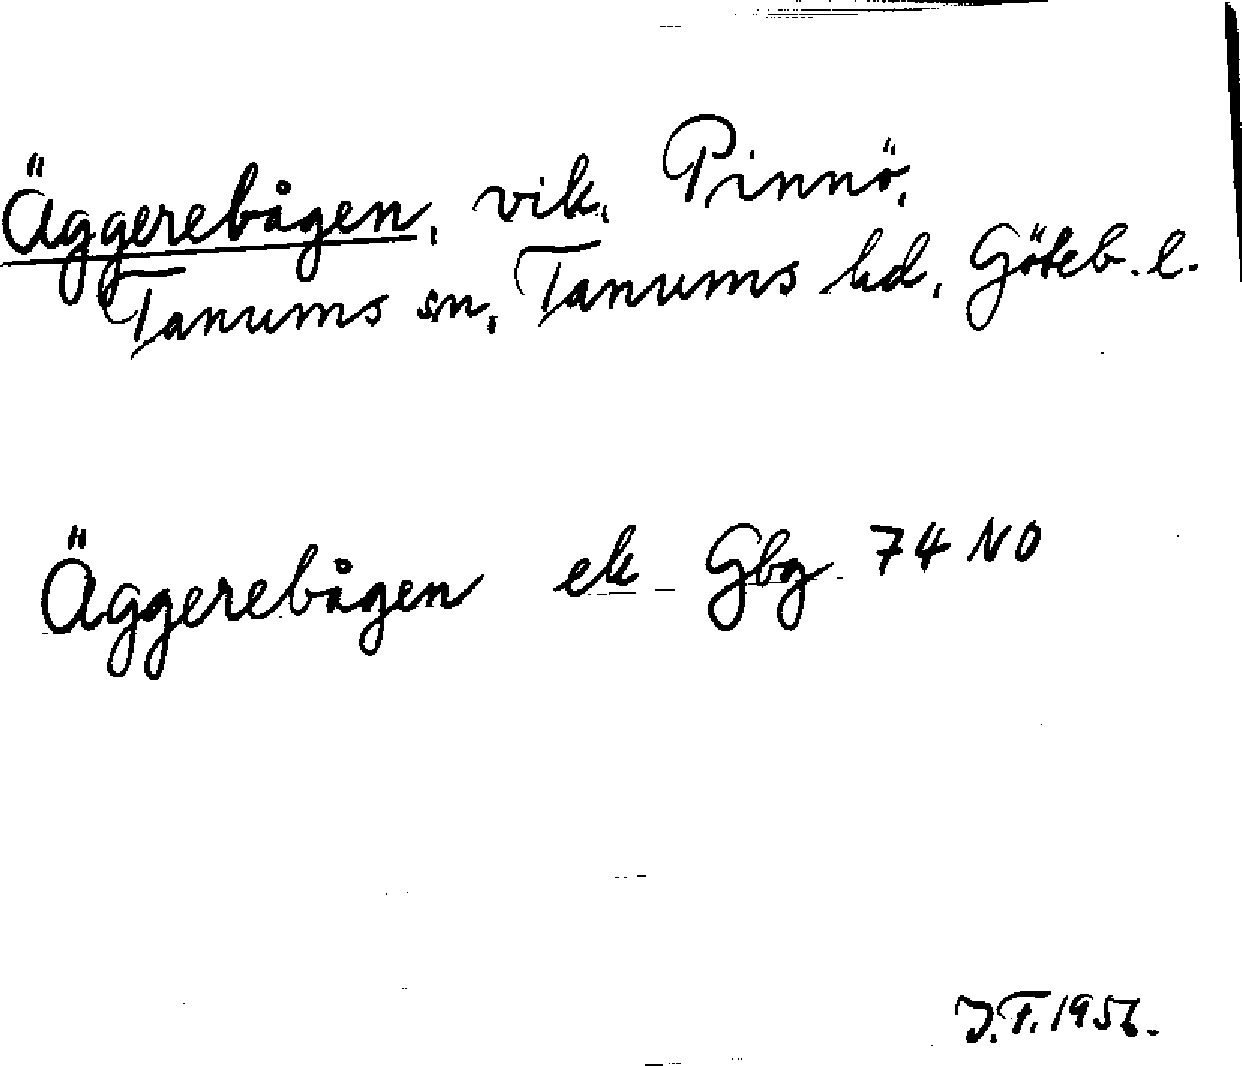 Äggerebågen, vik, Pinnö,
Tanums sn, Tanums hd, Göteb. l.
Äggerebågen ek Gbg 74 NO
J.F. 1956.